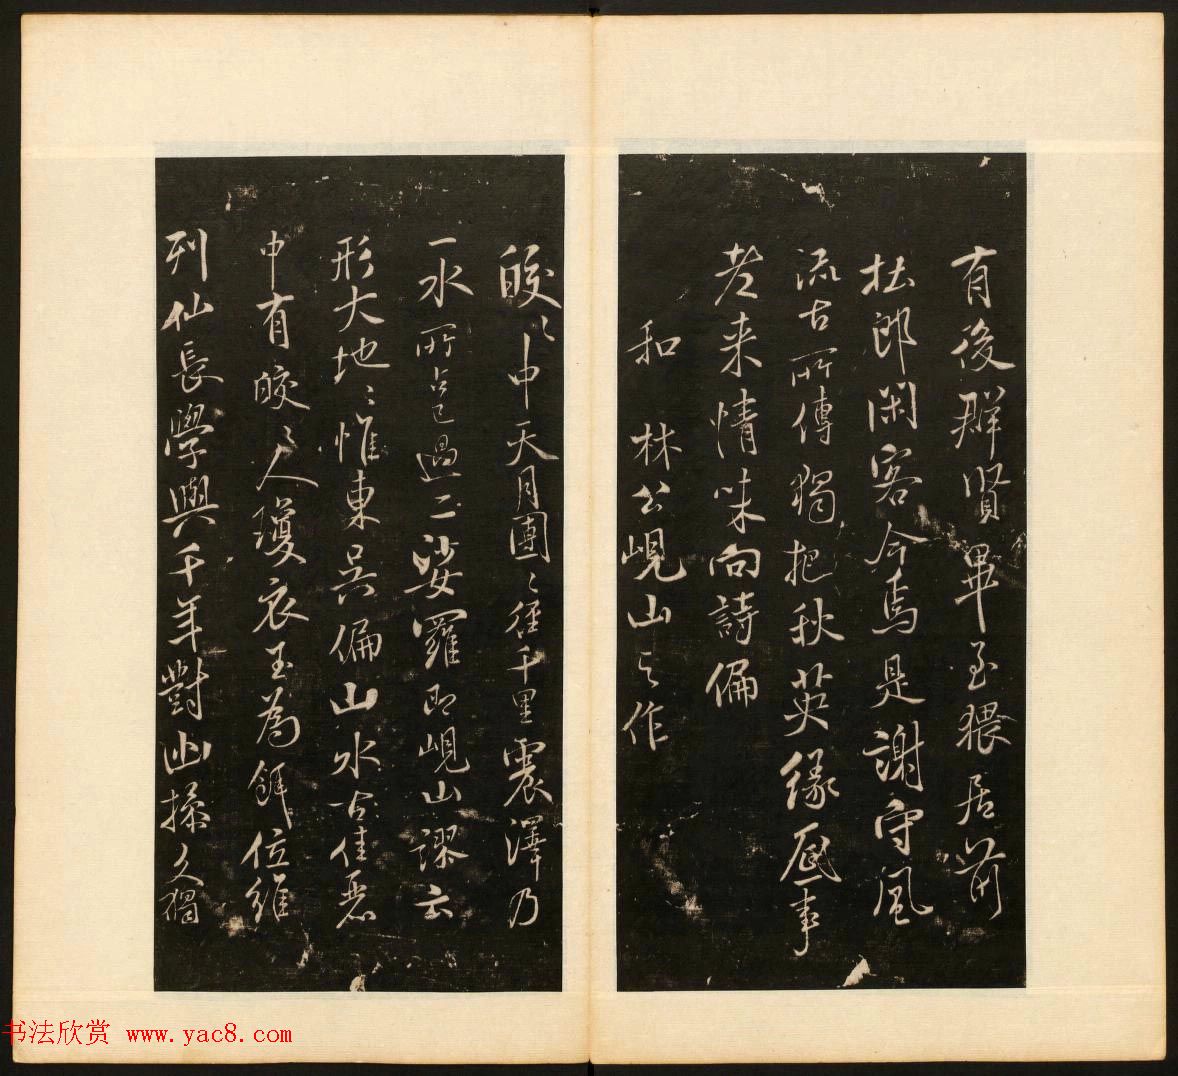 有後群賢畢至猥居前
杖郎閑客今焉是謝守風
流古所傳獨把秋英緣底事
老来情味向詩偏
和林公峴山之作
皎〻中天月團〻徑千里震澤乃
一水所占已過二娑羅即峴山謬云
形大地〻惟東吳偏山水古佳麗
中有皎〻人瓊衣玉為餌位維
列仙長學與千年對幽操久獨
书法欣赏 www.yac8.com